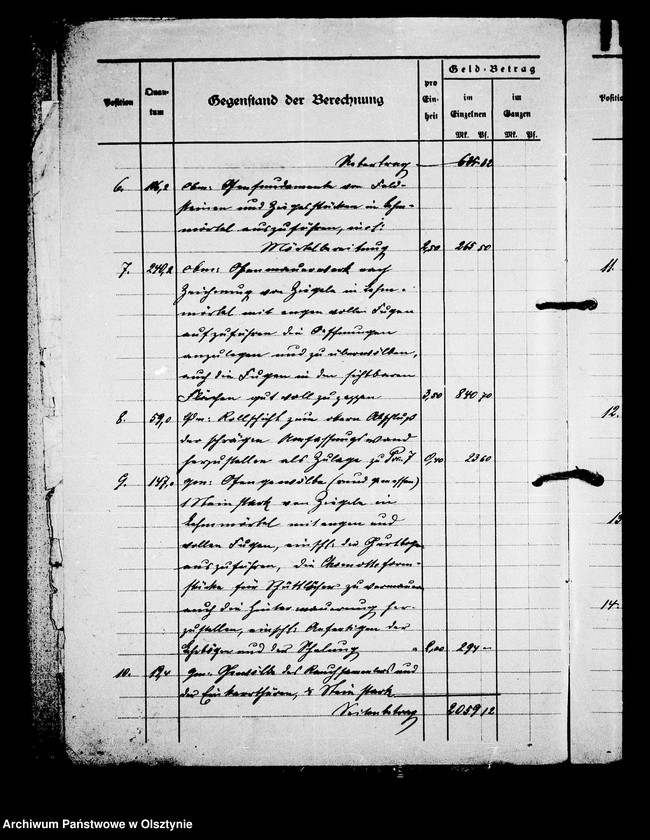 Position
Quan-
tum
Gegenstand der Berechnung
pro
Ein-
heit
Geld-Betrag
im
Einzelnen
Mk. Pf.
im
Ganzen
Mk. Pf.
Positio
Uebertrag — 635 82
6. 106,2 cbm: Ofenfundamente von Feld-
steinen und Ziegelstücken in Lehm-
mörtel auszuführen, incl:
Mörtelbereitung 2,50 265 50
7. 240,2 cbm: Ofenmauerwerk nach
Zeichnung von Ziegeln in Lehm-
mörtel mit engen vollen Fugen
aufzuführen die Oeffnungen
anzulegen und zu überwölben,
auch die Fugen in den sichtbaren
Flächen gut voll zu 3,50 840 70
8. 59,0 lfm: Rollschicht zum obern Abschluß
der schrägen Umfassungswand
herzustellen als Zulage zu Pos. 7 0,40 23 60
9. 147,0 qm: Ofengewölbe (rund gemessen)
1 Stein stark von Ziegeln in
Lehmmörtel mit engen und
vollen Fugen, einschl: der Gurtbogen
auszuführen, die Chamotteform-
stücke für Schüttlöcher zu vermauern
auch die Hintermauerung her-
zustellen, einschl: Anfertigen der
Lehrbögen und der Schalung 2,00 294 —
10. qm: Gewölbe des Rauchsammlers und
der Einkarrthüren, Stein stark
Seitenbetrag 2059 12
11.
12.
13
14.
Archiwum Państwowe w Olsztynie